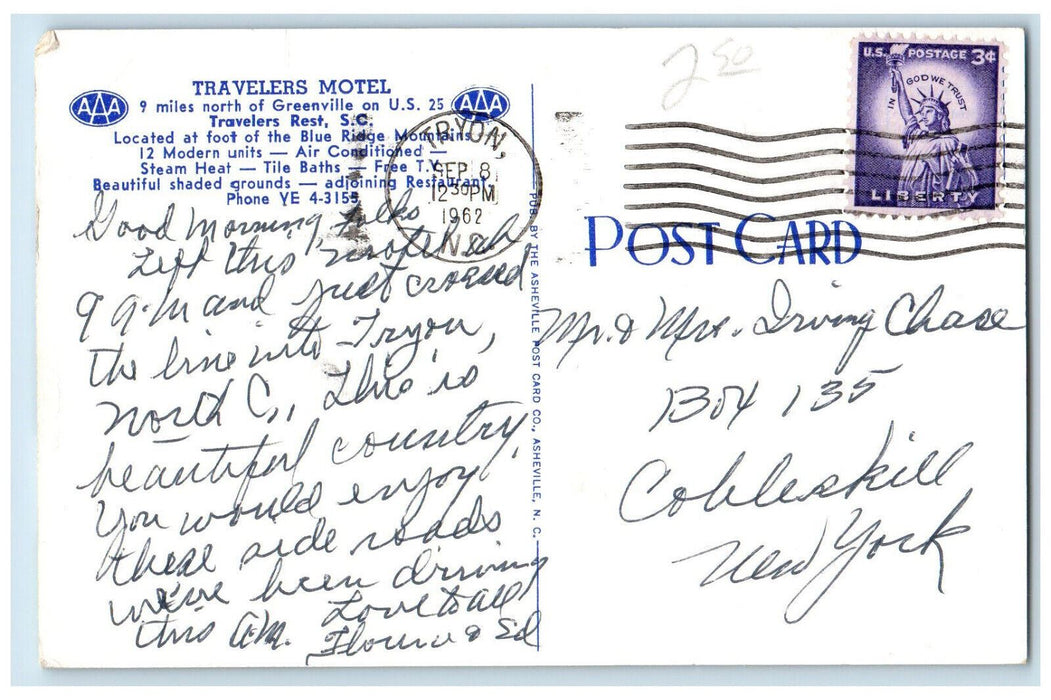 TRAVELERS MOTEL
AAA 9 miles north of Greenville on U.S. 25 AAA
Travelers Rest, S.C.
Located at foot of the Blue Ridge Mountains
12 Modern units — Air Conditioned
Steam Heat — Tile Baths — Free T.V.
Beautiful shaded grounds — adjoining Restaurant
Phone VE 4-3155
Good Morning, Folks
Left this motel at
9 a.m and just crossed
the line into Tryon,
North C., This is
beautiful country.
You would enjoy
these side roads
we've been driving
this a.m. Love to all
Florence & Ed
TRYON,
SEP 8
12 30 PM
1962
N.C.
PUB. BY THE ASHEVILLE POST CARD CO., ASHEVILLE, N. C.
2 50
U.S. POSTAGE 3¢
IN GOD WE TRUST
LIBERTY
POST CARD
Mr. & Mrs. Irving Chase
Box 135
Cobleskill
New York